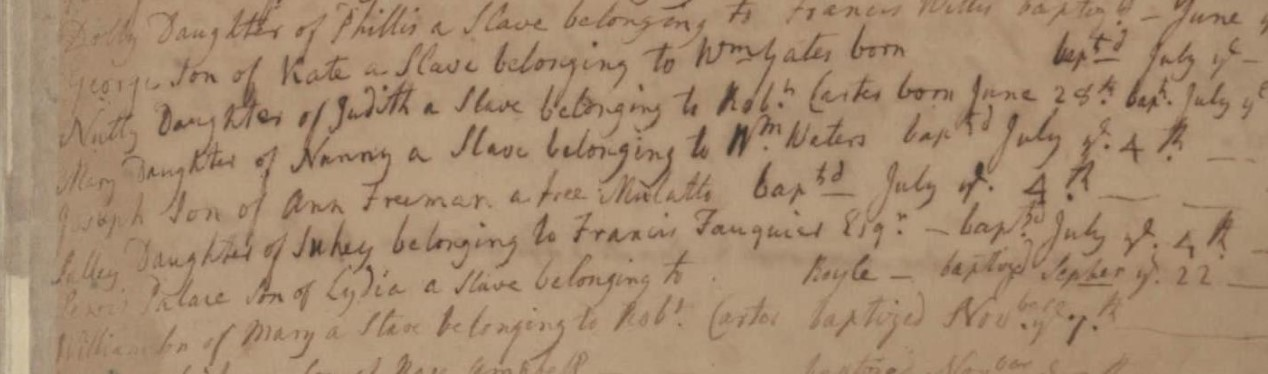 Dolly Daughter of Phillis a Slave belonging to Francis Willis baptiz.d – June
George Son of Kate a Slave belonging to Wm Yates born bapt.d July ye –
Nutty Daughter of Judith a Slave belonging to Rob.t Carter born June 28.th bap.t July ye
Mary Daughter of Nanny a Slave belonging to W.m Waters bapt.d July ye. 4 th
Joseph Son of Ann Freeman a free Mulatto bapt.d July ye. 4 th
Salley Daughter of Sukey belonging to Francis Fauquier Esq.r – bapt.d July ye. 4 th
Palace Son of Lydia a Slave belonging to Royle – baptized Sepber ye. 22
William Sn of Mary a Slave belonging to Rob.t Carter baptized Nov.ber ye. 7.th